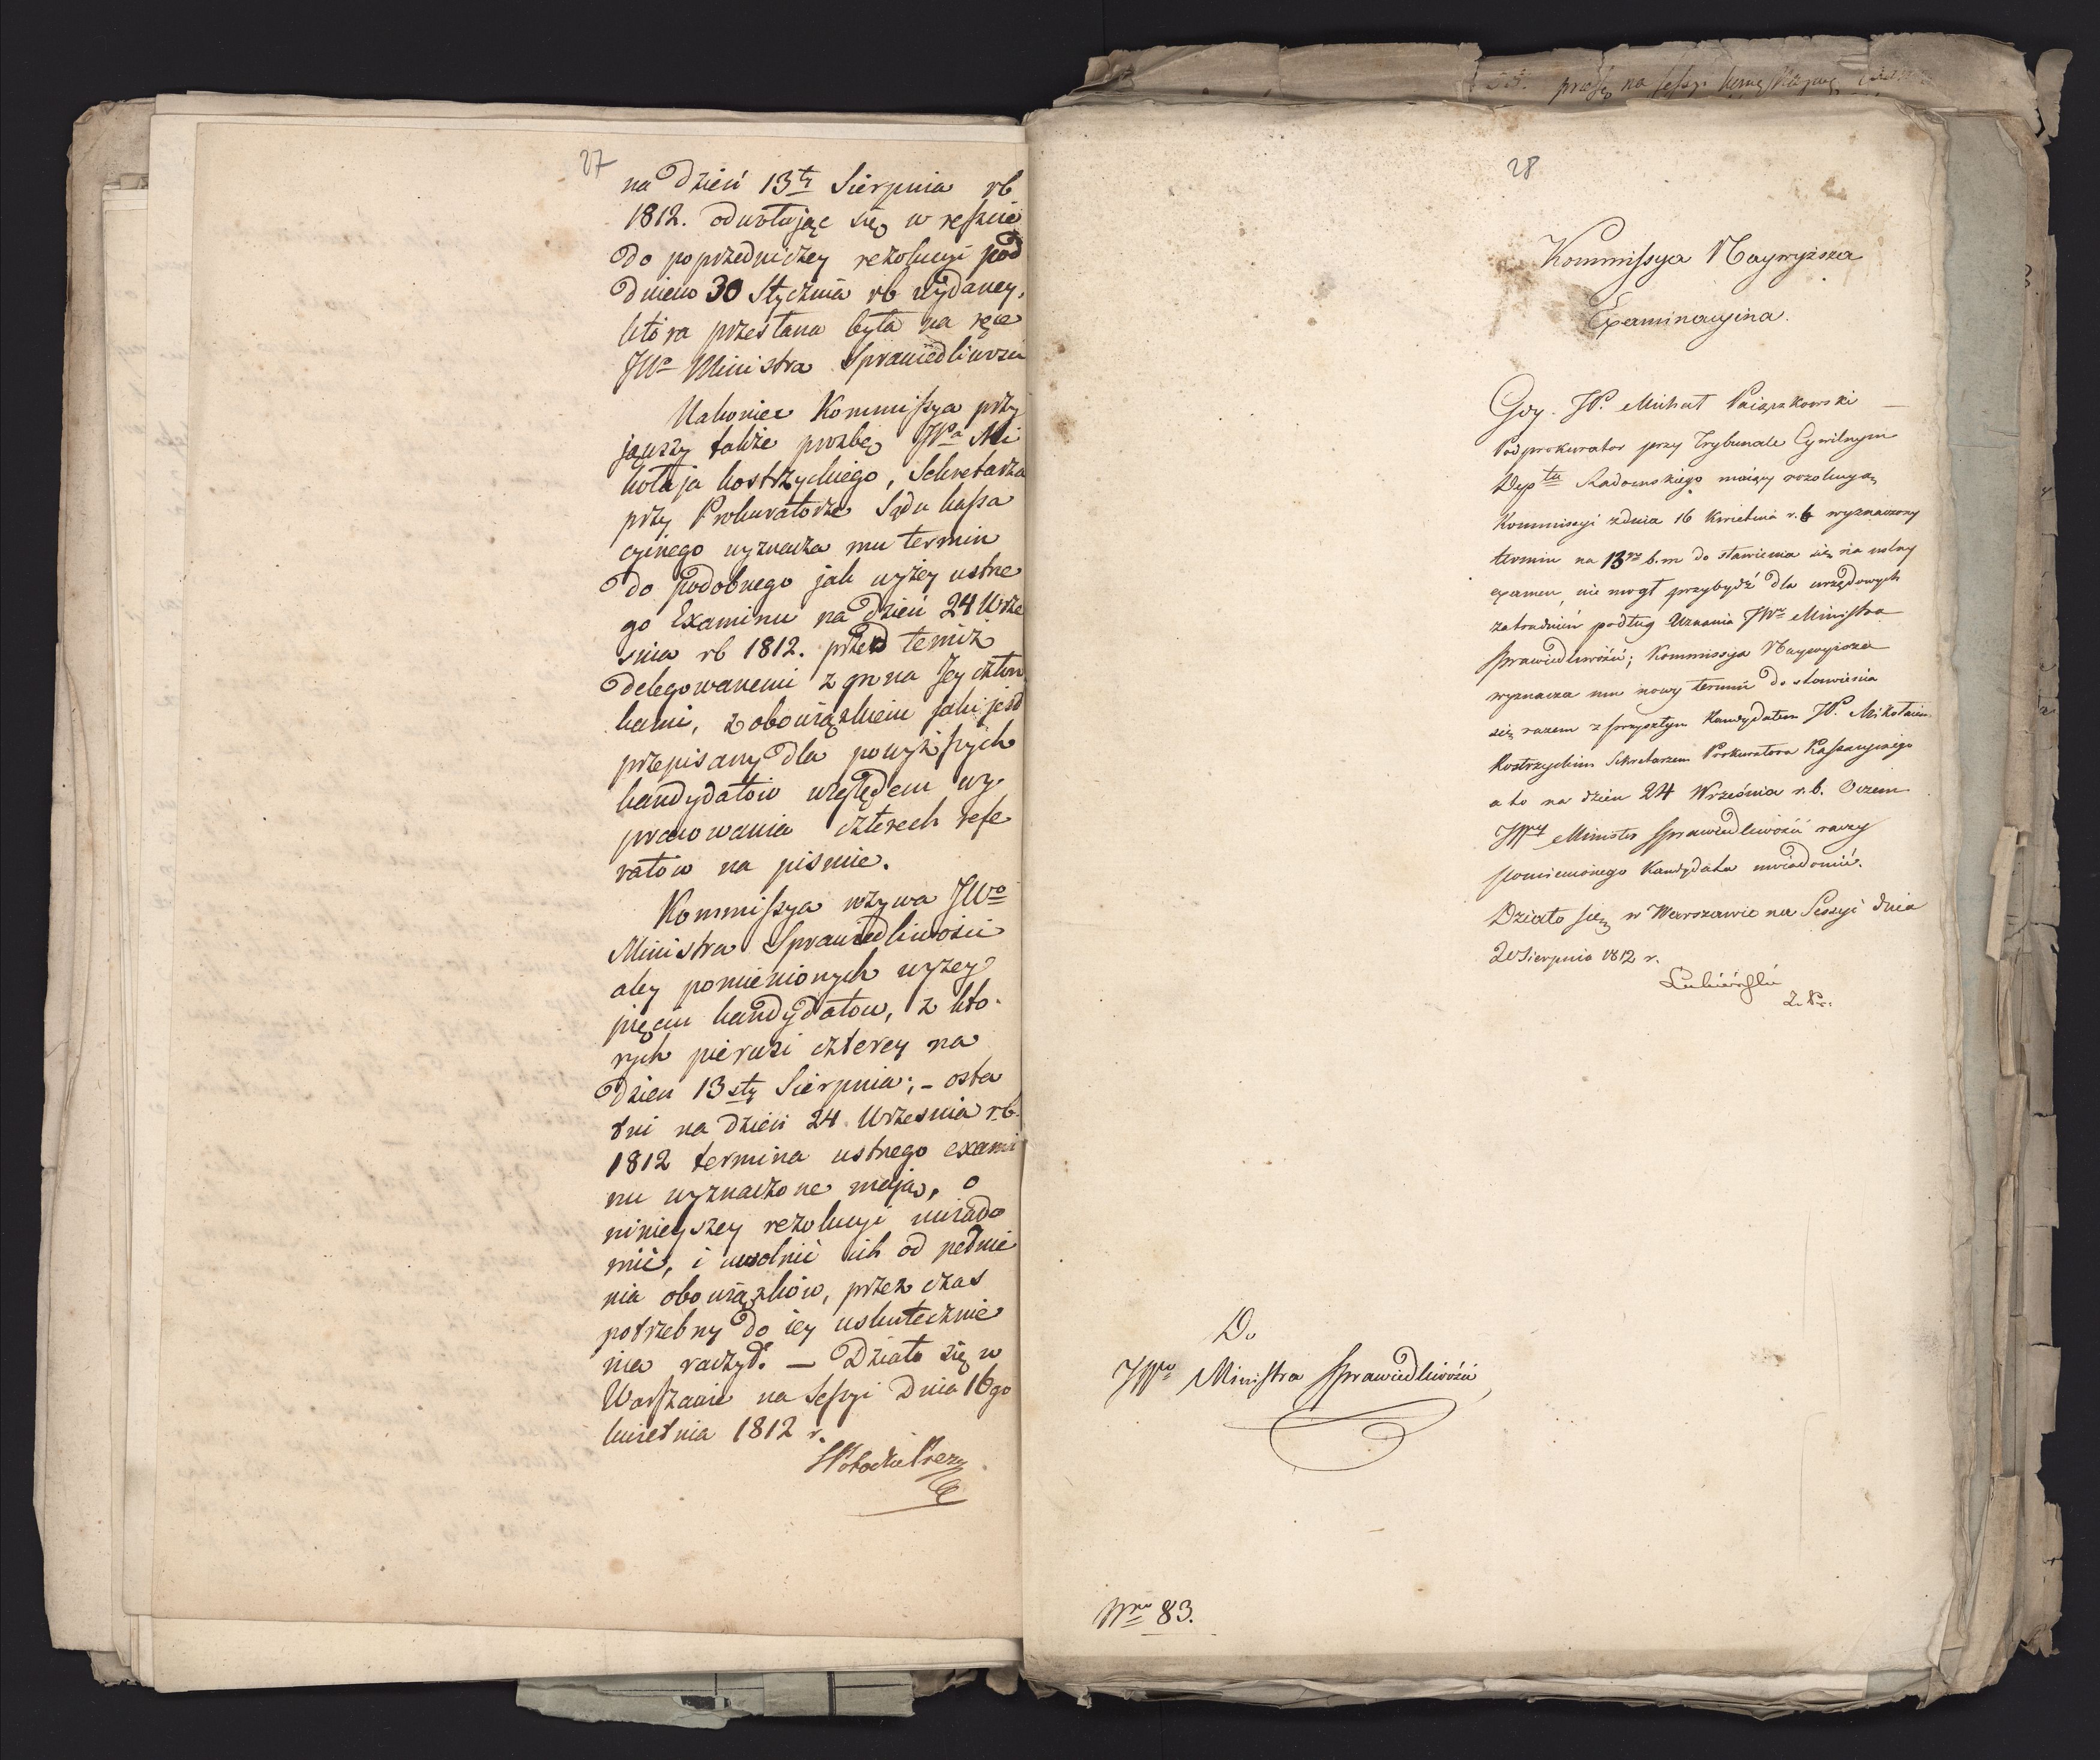 27
na dzień 13ty Sierpnia rb
1812. odwołując się w reszcie
do poprzedniczey rezolucyi pod
dniem 30 Stycznia rb wydaney,
która przesłana była na ręce
JWo Ministra Sprawiedliwości
Nakoniec Kommissya przy
jąwszy także prozbę JPa Mi
kołaja Kostrzyckiego, Sekretarza
przy Prokuratorze Sądu kassa
cyinego wyznacza mu termin
do podobnego jak wyżey ustne
go Examinu na dzień 24 Wrze
snia rb 1812. przed temiż
delegowanemi z grona Jey człon
kami, z obowiązkiem jaki jest
przepisany dla powyższych
kandydatów względem wy
pracowania czterech refe
ratów na pismie.
Kommissya wzywa JWo
Ministra Sprawiedliwości
aby pomienionych wyżey
pięciu kandydatow, z kto-
rych pierwsi czterey na
dzien 13sty Sierpnia; - osta
tni na dzień 24. Wrzesnia r.b.
1812 termina ustnego exami
nu wyznaczone mają, o
ninieyszey rezolucyi uwiado
mić, i uwolnić ich od pełnie
nia obowiązków, przez czas
potrzebny do iey uskutecznie
nia raczył. — Działo się w
Warszawie na Sessyi dnia 16go
kwietnia 1812 r.
Potocki Prezy
28
Kommissya Naywyższa
Examinacyina.
Gdy JP. Michał Paiączkowski
Podprokurator przy Trybunale Cywilnym
Deptu Radomskiego maiący rezolucyą
Kommissyi z dnia 16 Kwietnia r.b wyznaczony
termin na 13 b.m do stawienia się na ustny
examen, nie mogł przybydź dla urzędowych
zatrudnień podług Uznania JWo Ministra
Sprawiedliwości; Kommissya Naywyższa
wyznacza mu nowy termin do stawienia
się razem z przyszłym Kandydatem JP. Mikołaiem
Kostrzyckim Sekretarzem Prokuratora Kassacyinego
a to na dzien 24 Września r.b. O czem
JWny Minister Sprawiedliwości raczy
pomienionego Kandydata uwiadomić.
Działo się w Warszawie na Sessyi dnia
20 Sierpnia 1812 r.
Lubieński
Do
JWo Ministra Sprawiedliwości
Nro 83.